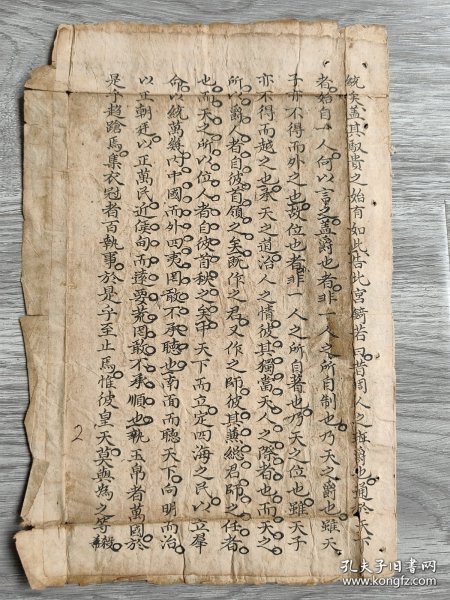 統矣蓋其馭貴之始有如此告北宮錡若曰昔周人之班爵也通於天下
者始自一人何以言之蓋爵也者非一人之所自制也乃天之爵也雖天
子亦不得而外之也故位也者非一人之所自者也乃天之位也雖天子
亦不得而越之也承天之道治人之情彼其獨當天人之際者也而天之
所以爵人者自彼首領之矣既作之君又作之師彼其兼總君師之任者
也而天之所以位人者自彼首秩之矣中天下而立定四海之民以立羣
命以統萬縣內中國而外四夷罔敢不承聽也南面而聽天下向明而治
以正朝廷以正萬民近侯甸而遠要荒罔敢不承順也執玉帛者萬國於
是乎趨蹌焉集衣冠者百執事於是乎至止焉惟彼皇天莫與為之等級
2
孔夫子旧书网
www.kongfz.com